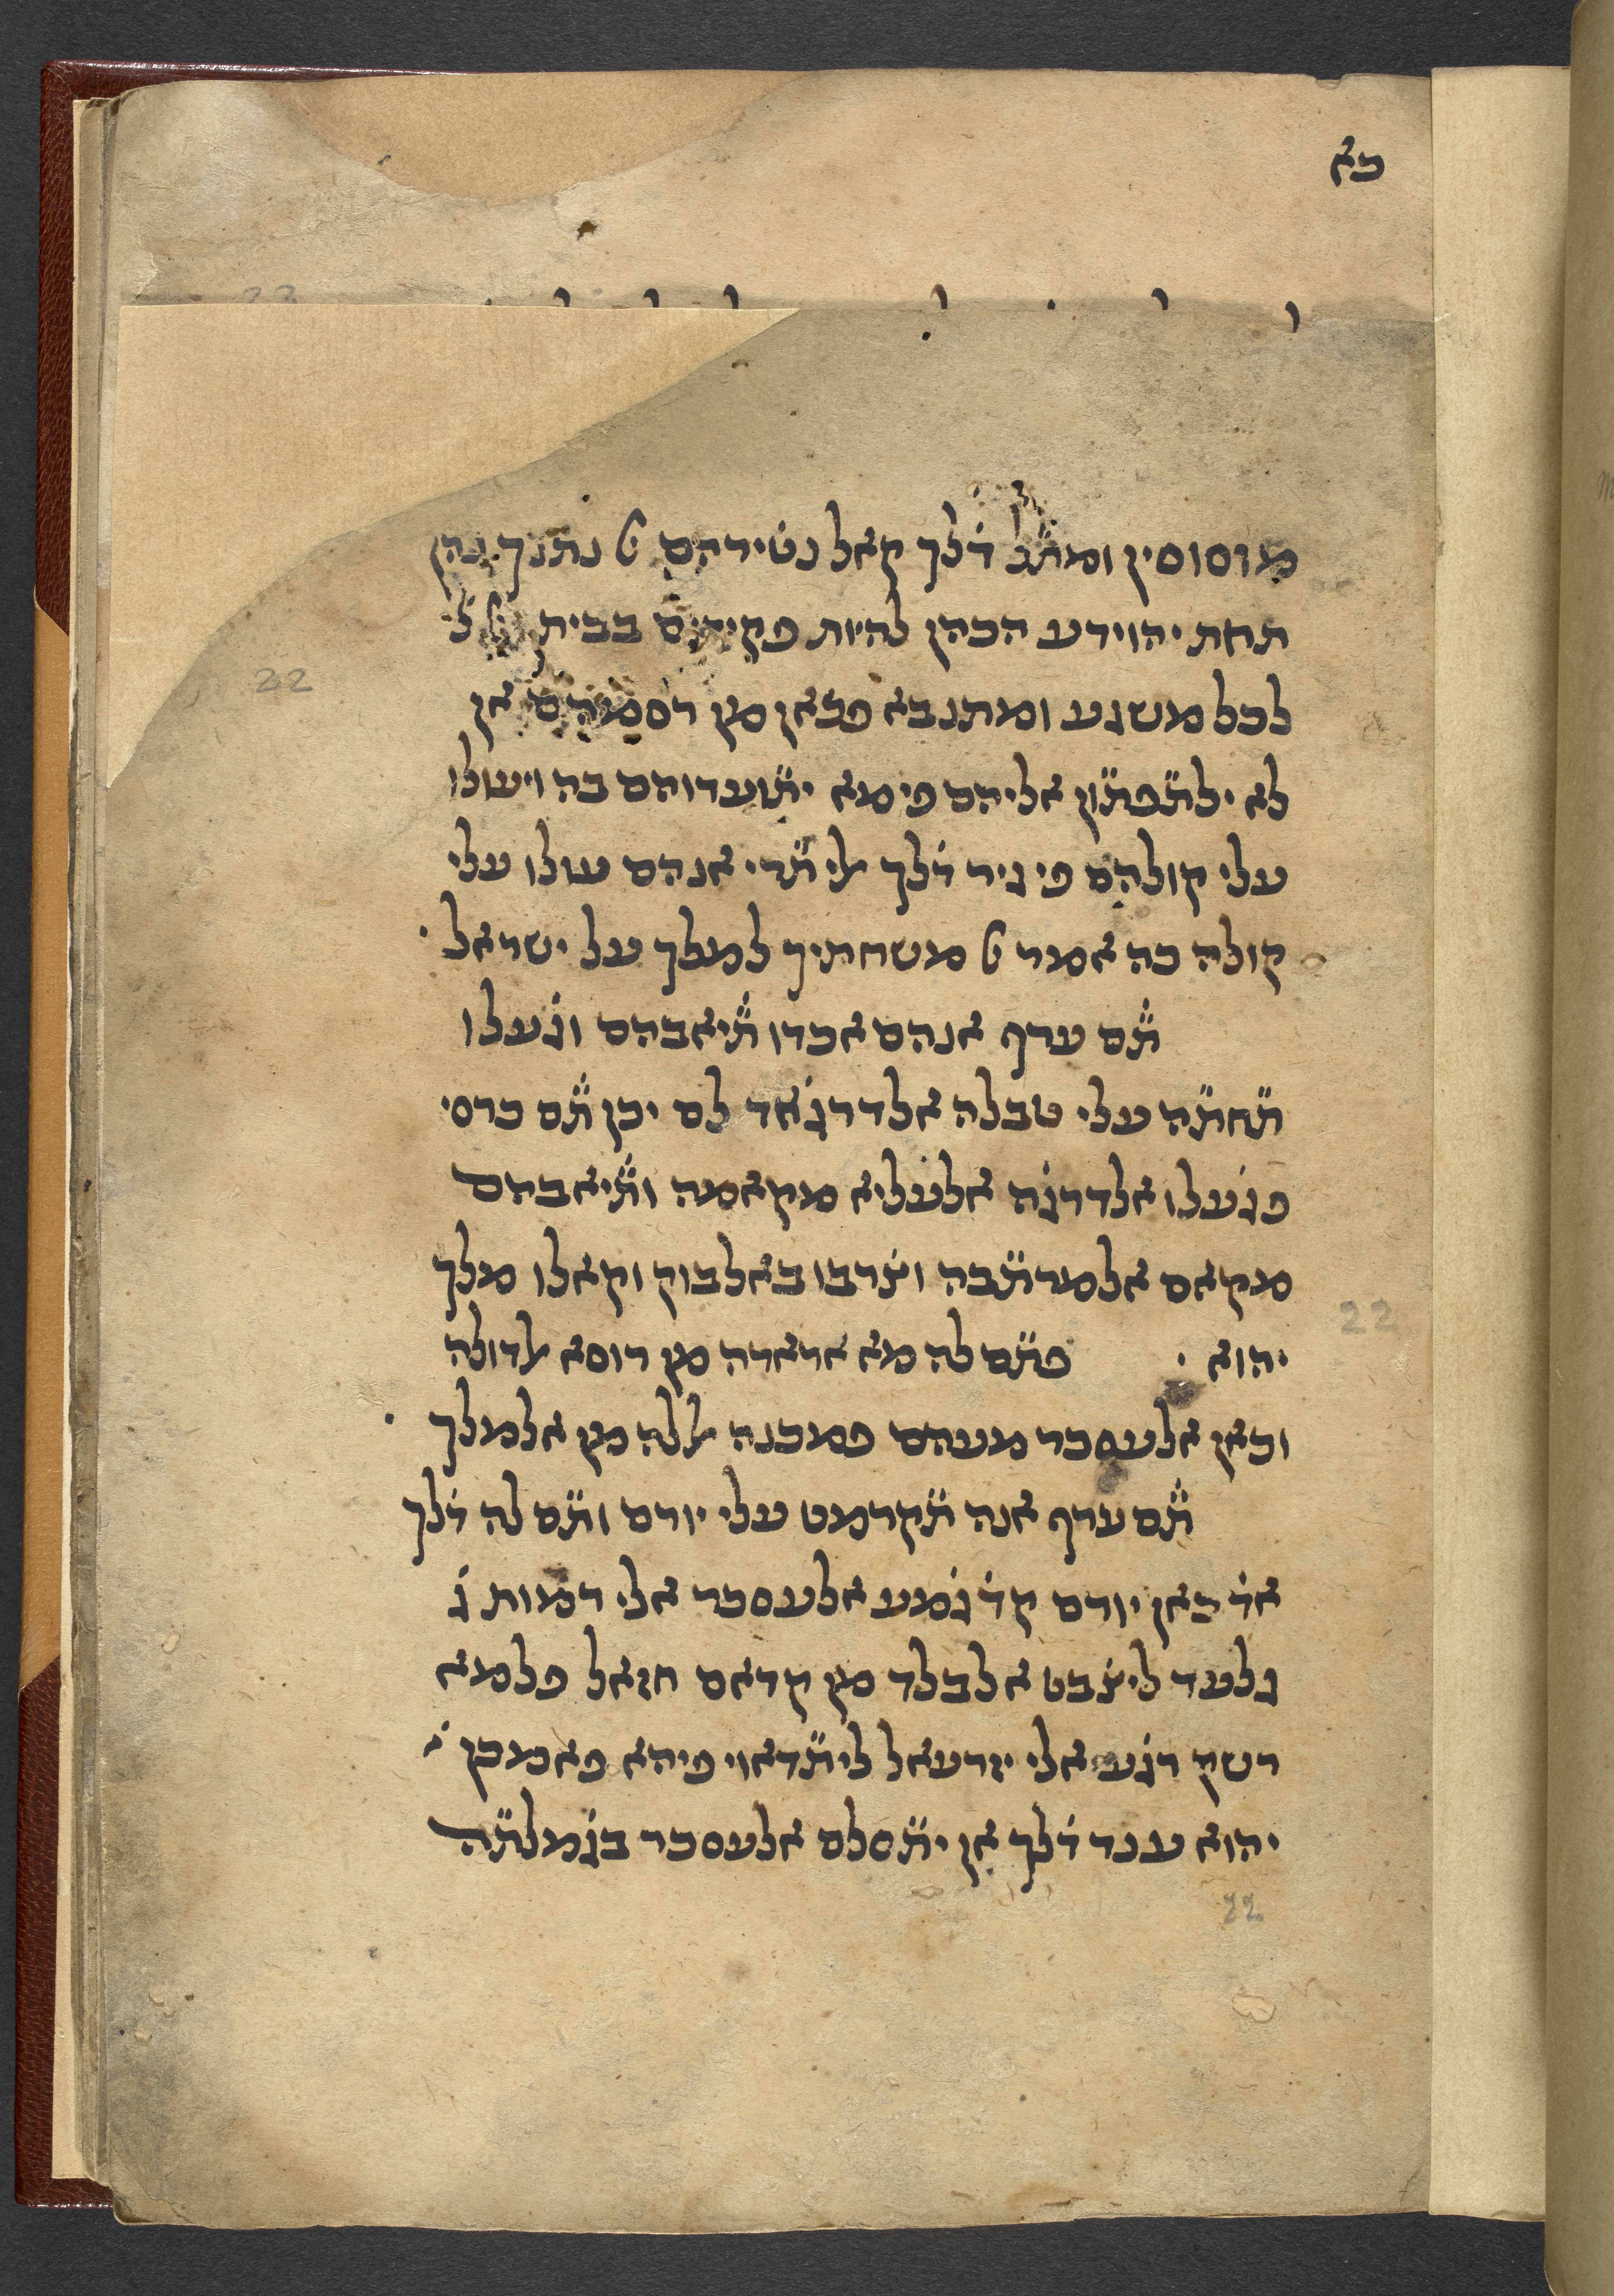 כא
מוסוסין ומתׄל דׄלך קאל נטירהם נתנך כהן
תחת יהוידע הכהן להיות פקידים בבית
לכל משגע ומתנבא פכאן מן רסמהם אן
22
לא ילתׄפתׄון אליהם פימא יתׄועדוהם בה ויעולו
עלי קולהם פי גיר דׄלך ﭏי תׄרי אנהם עולו עלי
קולה כה אמר משחתיך למלך על ישראל ·
תׄם ערף אנהם אכדו תׄיאבהם וגׄעלו
תׄחתׄה עלי טבלה אלדרגׄ אד לם יכן תׄם כרסי
פגׄעלו אלדרגׄה אלעליא מקאמה ותׄיאבהם
מקאם אלמרתׄבה וצׄרבו באלבוק וקאלו מלך
22
יהוא · פתׄם לה מא אראדה מן רוסא ﭏדולה
וכאן אלעסכר מעהם פמכנה ﭏלה מן אלמלך ·
תׄם ערף אנה תׄקרמט עלי יורם ותׄם לה דׄלך
אדׄ כאן יורם קד גׄמע אלעסכר אלי רמות גׄ
גלעד ליצׄבט אלבלד מן קדאם חזאל פלמא
רשק רגׄע אלי יזרעאל ליתׄדאוי פיהא פאמכן
יהוא ענד דׄלך אן יתׄסלם אלעסכר בגׄמלתׄה
22